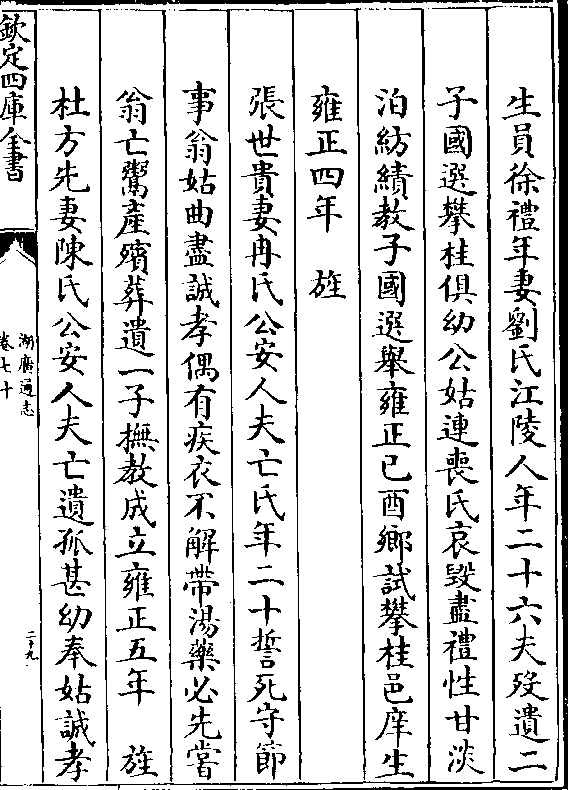 生員徐禮年妻劉氏江陵人年二十六夫歿遺二
子國選攀桂俱幼公姑連喪氏哀毀盡禮性甘淡
泊紡績教子國選舉雍正己酉鄉試攀桂邑庠生
雍正四年　旌
張世貴妻冉氏公安人夫亡氏年二十誓死守節
事翁姑曲盡誠孝偶有疾衣不解帶湯藥必先嘗
翁亡鬻產殯葬遺一子撫教成立雍正五年　旌
杜方先妻陳氏公安人夫亡遺孤甚幼奉姑誠孝
欽定四庫全書
湖廣通志
卷七十
二十九